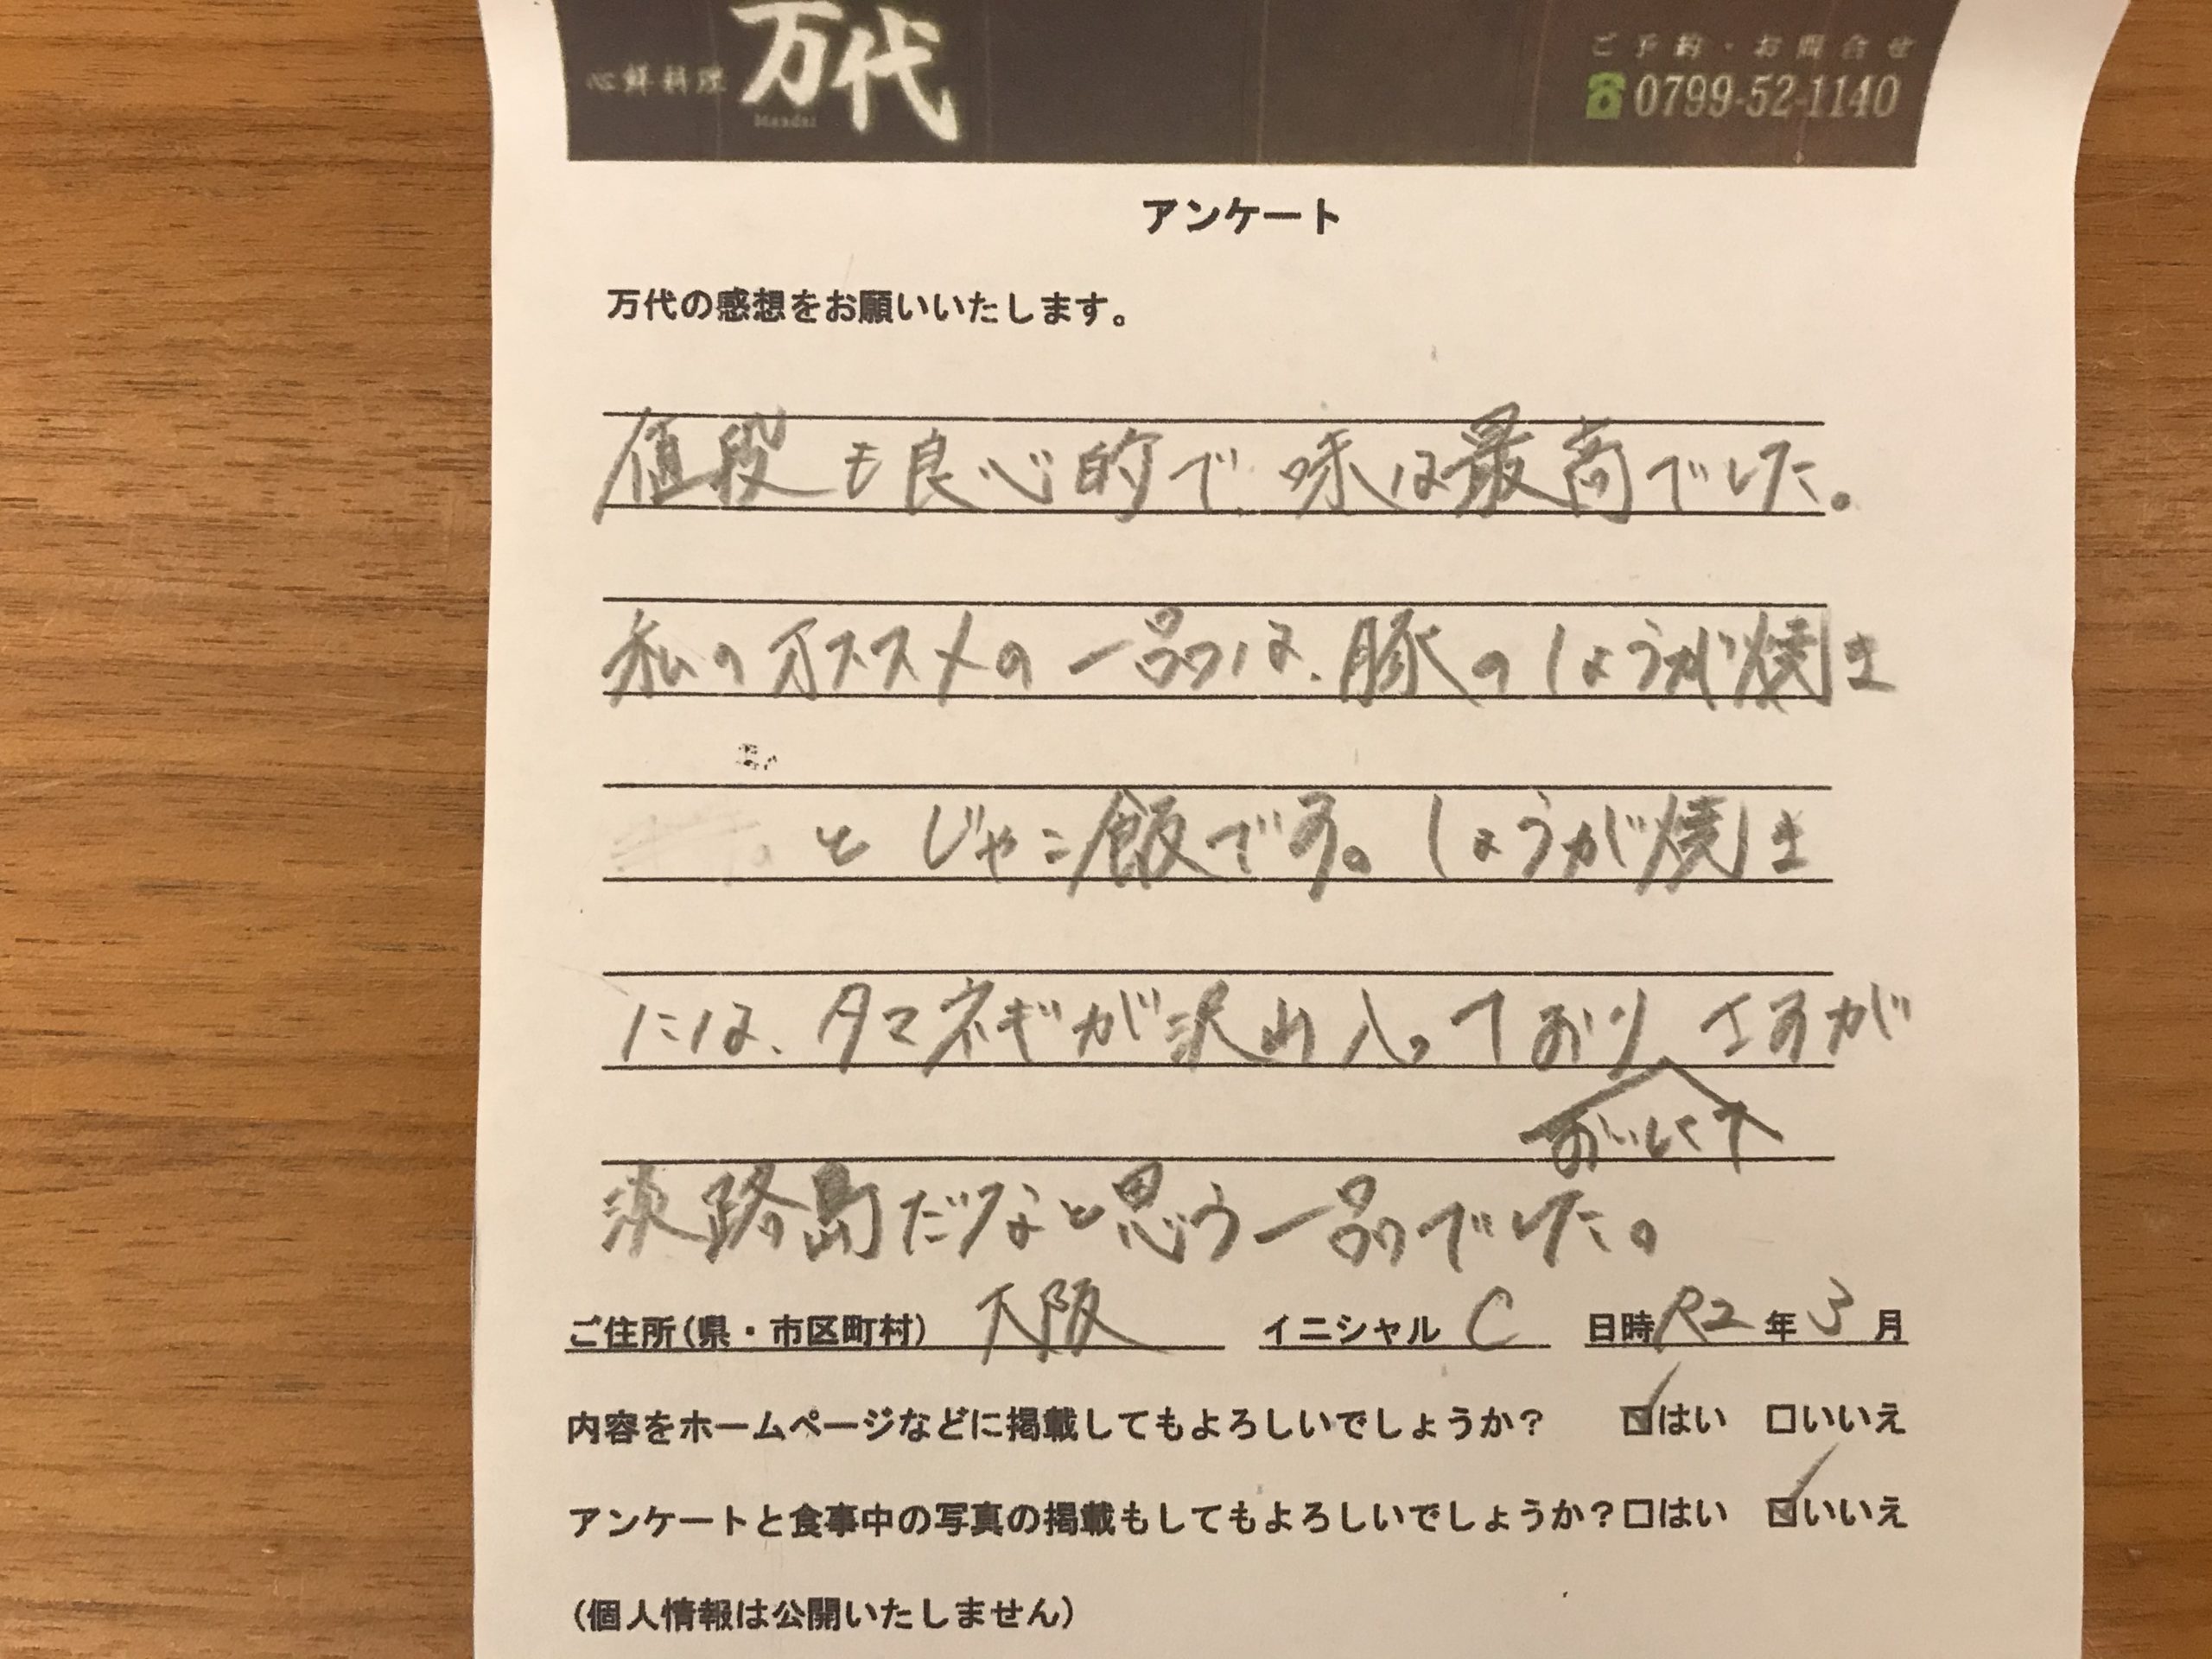 心鮮料理 万代
Mandai
ご予約・お問合せ
0799-52-1140
アンケート
万代の感想をお願いいたします。
値段も良心的で、味は最高でした。
私のオススメの一品は、豚のしょうが焼き
とじゃこ飯です。しょうが焼き
には、タマネギが沢山入っており さすが
おいしくて
淡路島だなと思う一品でした。
ご住所(県・市区町村) 大阪 イニシャル C 日時 R2 年 3 月
内容をホームページなどに掲載してもよろしいでしょうか? ☑はい □いいえ
アンケートと食事中の写真の掲載もしてもよろしいでしょうか?□はい ☑いいえ
(個人情報は公開いたしません)